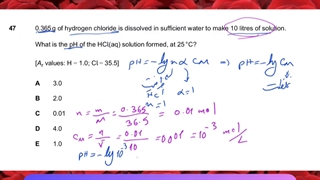 47 0.365 g of hydrogen chloride is dissolved in sufficient water to make 10 litres of solution.
What is the pH of the HCl(aq) solution formed, at 25 °C?
[Ar values: H – 1.0; Cl - 35.5]
pH = -lg nα CM => pH = -lg CM
HCl α=1
n=1
A 3.0
B 2.0
C 0.01
D 4.0
E 1.0
n = m/M = 0.365/36.5 = 0.01 mol
CM = n/V = 0.01/10 = 0.001 = 10^-3 mol/L
pH = -lg 10^-3